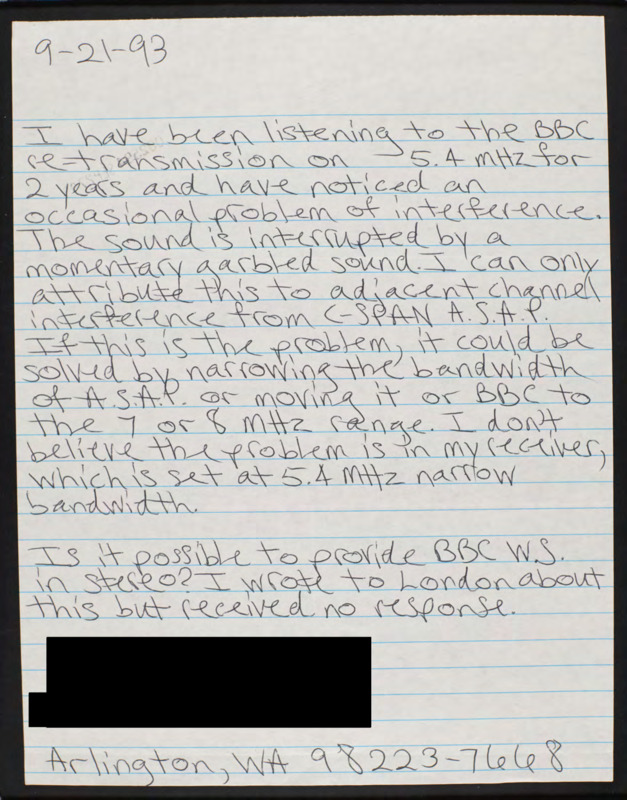 9-21-93
I have been listening to the BBC
re-transmission on 5.4 MHz for
2 years and have noticed an
occasional problem of interference.
The sound is interrupted by a
momentary garbled sound. I can only
attribute this to adjacent channel
interference from C-SPAN A.S.A.P.
If this is the problem, it could be
solved by narrowing the bandwidth
of A.S.A.P. or moving it or BBC to
the 7 or 8 MHz range. I don't
believe the problem is in my receiver,
which is set at 5.4 MHz narrow
bandwidth.
Is it possible to provide BBC W.S.
in stereo? I wrote to London about
this but received no response.
Arlington, WA 98223-7668